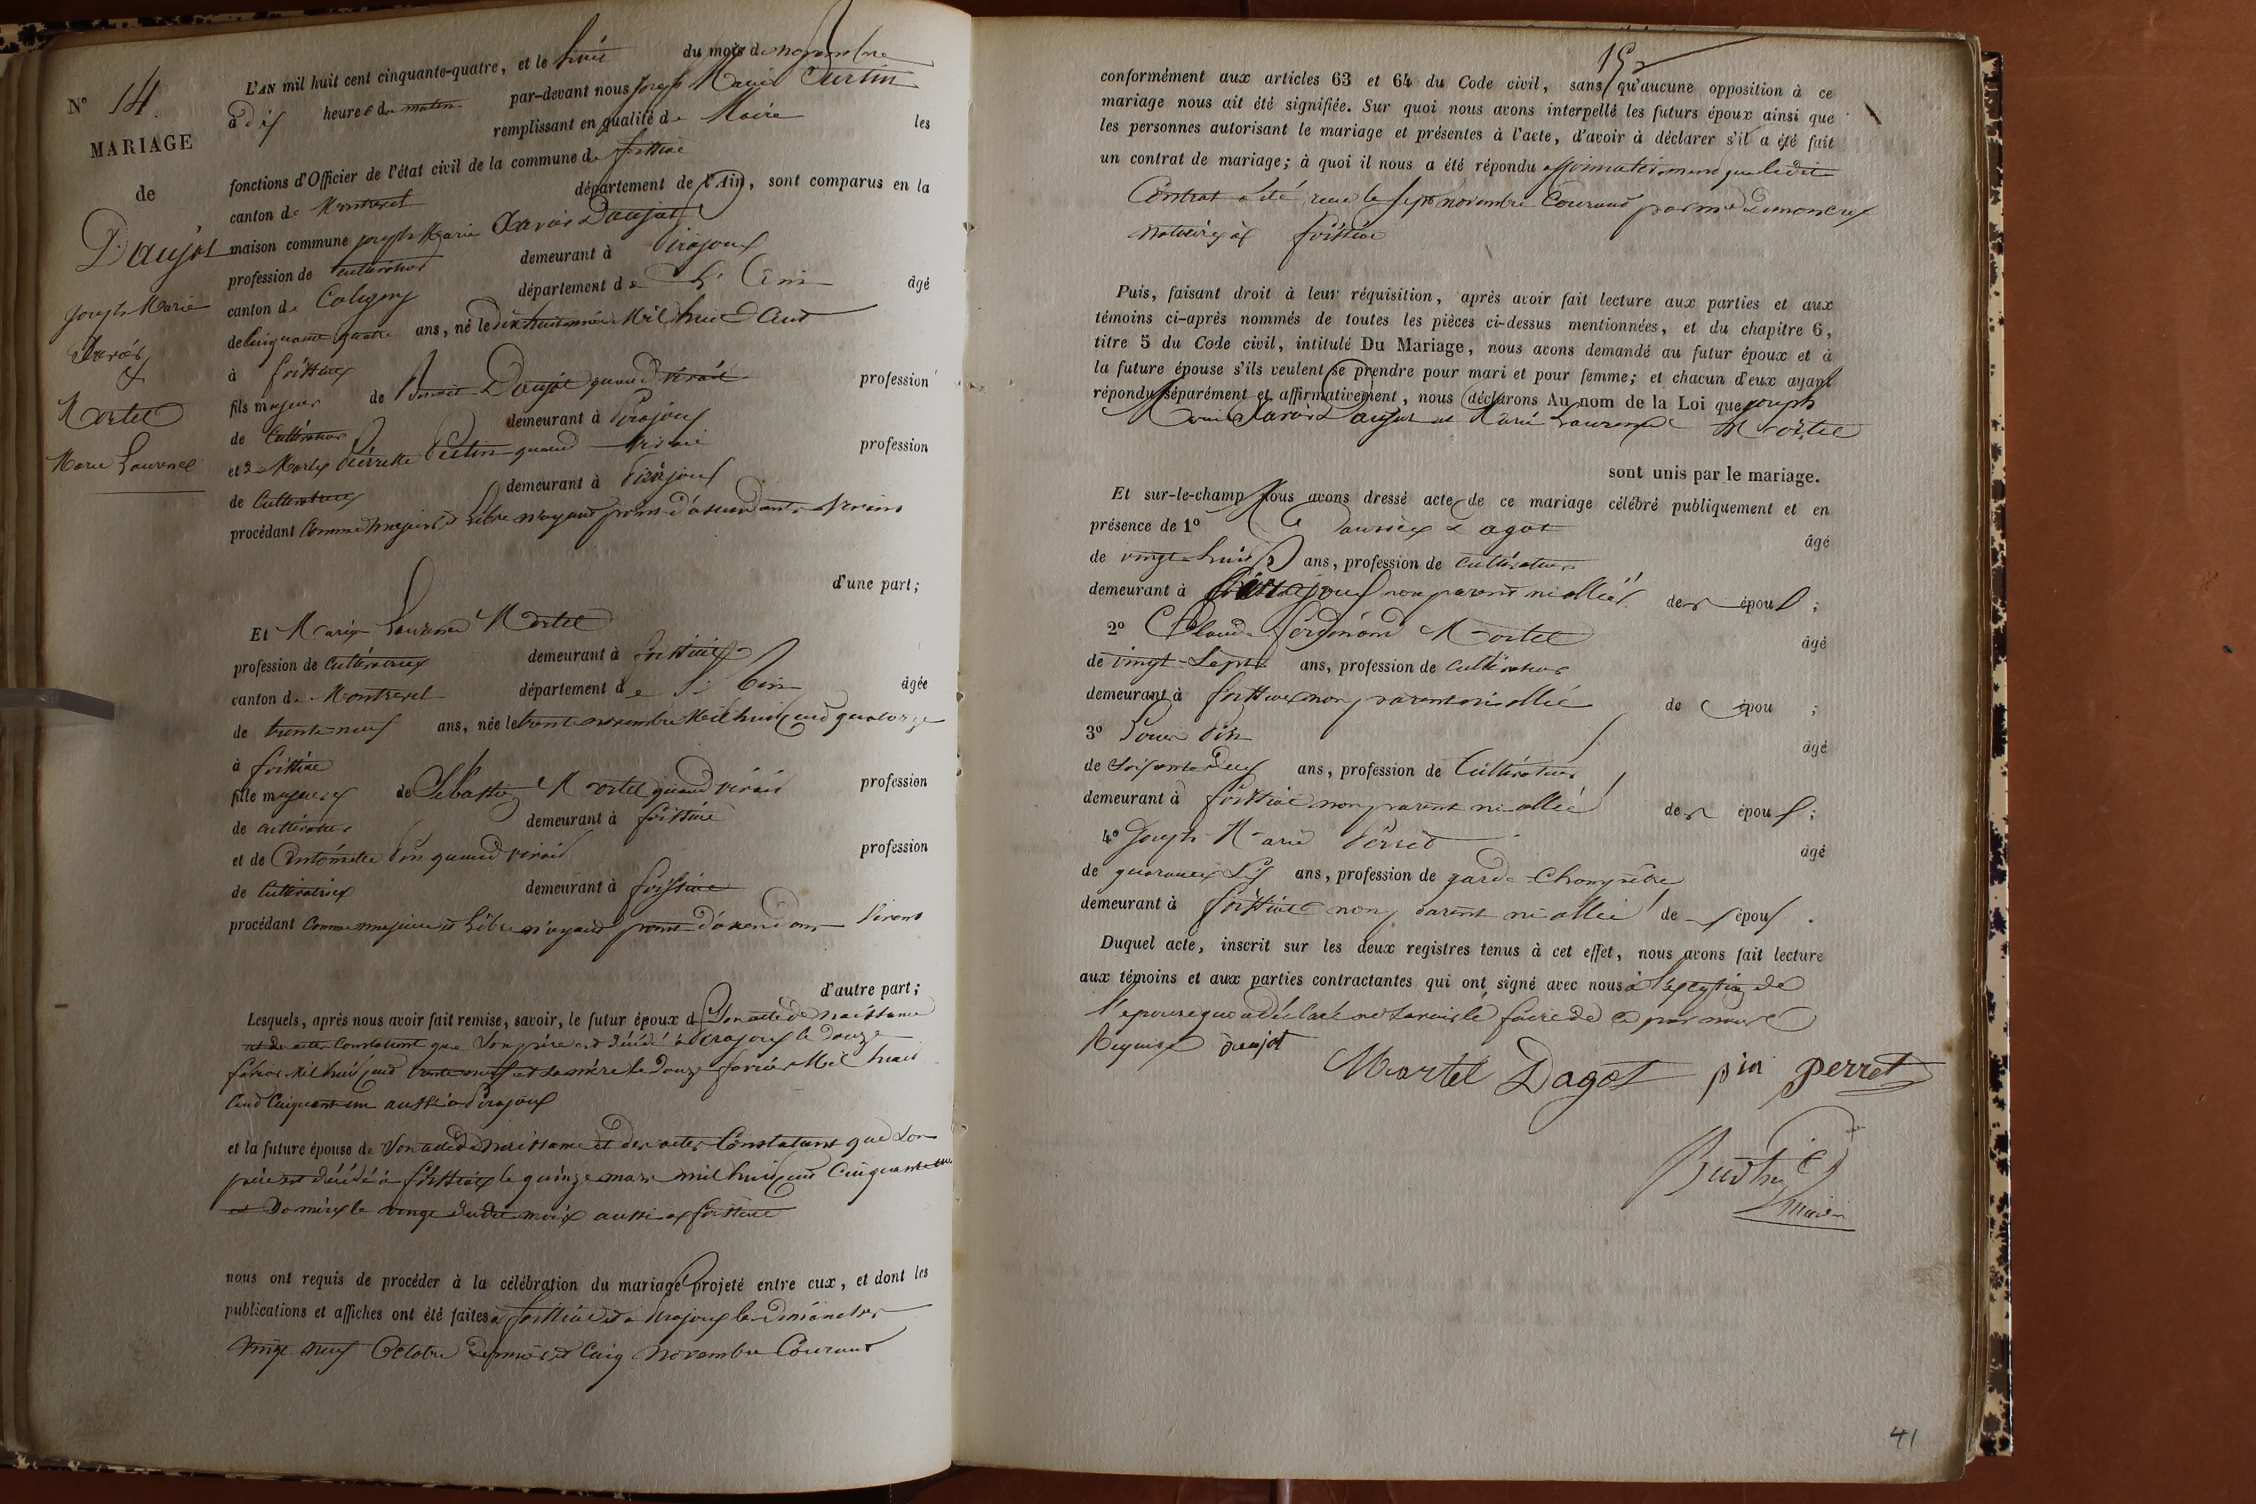 N° 14.
MARIAGE
de
Daujat
Joseph Marie
Xavier
&
Mortel
Marie Laurence
L'AN mil huit cent cinquante-quatre, et le huit du mois de novembre
à dix heures du matin par-devant nous Joseph Marie
remplissant en qualité de Maire les
fonctions d'Officier de l'état civil de la commune de foissiat
canton de Montrevel département de l'Ain, sont comparus en la
maison commune joseph Marie Xavier Daujat
profession de cultivateur demeurant à Pirajoux
canton de Coligny département de L'Ain âgé
de Cinquante quatre ans, né le mil huit Cent
à foissiat
fils majeur de Benoit Daujat quand vivait profession
de Cultivateur demeurant à Pirajoux
et de Marie Pierrette quand vivait profession
de Cultivatrice demeurant à Pirajoux
procédant Comme majeur et Libre n'ayant point d'ascendants vivans
d'une part;
Et Marie Laurence Mortel
profession de Cultivatrice demeurant à foissiat
canton de Montrevel département de L'Ain âgée
de trente neuf ans, née le trente novembre Mil huit Cent quatorze
à foissiat
fille majeure de Sébastien Mortel quand vivait profession
de cultivateur demeurant à foissiat
et de Antoinette Pin quand vivait profession
de Cultivatrice demeurant à foissiat
procédant Comme majeure et Libre n'ayant point d'ascendans vivans
d'autre part;
Lesquels, après nous avoir fait remise, savoir, le futur époux de Son acte de naissance
et des actes Constatant que Son père est décédé à Pirajoux le douze
février Mil huit Cent trente neuf et sa mère le douze février Mil huit
Cent Cinquante un aussi à Pirajoux
et la future épouse de Son acte de naissance et des actes Constatant que son
père est décédé à foissiat le quinze mars mil huit Cent Cinquante
et Sa mère le vingt dudit mois aussi à foissiat
nous ont requis de procéder à la célébration du mariage projeté entre eux, et dont les
publications et affiches ont été faites à foissiat et à Pirajoux les Dimanches
vingt neuf Octobre dernier et Cinq Novembre Courant
152
conformément aux articles 63 et 64 du Code civil, sans qu'aucune opposition à ce
mariage nous ait été signifiée. Sur quoi nous avons interpellé les futurs époux ainsi que
les personnes autorisant le mariage et présentes à l'acte, d'avoir à déclarer s'il a été fait
un contrat de mariage; à quoi il nous a été répondu affirmativement que ledit
Contrat a été reçu le sept novembre Courant par
notaire à foissiat
Puis, faisant droit à leur réquisition, après avoir fait lecture aux parties et aux
témoins ci-après nommés de toutes les pièces ci-dessus mentionnées, et du chapitre 6,
titre 5 du Code civil, intitulé Du Mariage, nous avons demandé au futur époux et à
la future épouse s'ils veulent se prendre pour mari et pour femme; et chacun d'eux ayant
répondu séparément et affirmativement, nous déclarons Au nom de la Loi que joseph
Marie Xavier Daujat et Marie Laurence Mortel
sont unis par le mariage.
Et sur-le-champ Nous avons dressé acte de ce mariage célébré publiquement et en
présence de 1° Dagot âgé
de vingt huit ans, profession de cultivateur
demeurant à Pirajoux non parent ni allié des époux;
2° Claude Ferdinand Mortel âgé
de vingt-Sept ans, profession de Cultivateur
demeurant à foissiat non parent ni allié de épou ;
3° Louis Pin âgé
de Soixante Deux ans, profession de Cultivateur
demeurant à foissiat non parent ni allié des époux;
4° Joseph Marie Perret âgé
de quarante Six ans, profession de garde-Champêtre
demeurant à foissiat non parent ni allié des époux.
Duquel acte, inscrit sur les deux registres tenus à cet effet, nous avons fait lecture
aux témoins et aux parties contractantes qui ont signé avec nous à l'exception de
l'épouse qui a déclaré ne Savoir le faire de ce par nous
Requise Daujat
Mortel Dagot pin perret
maire
41